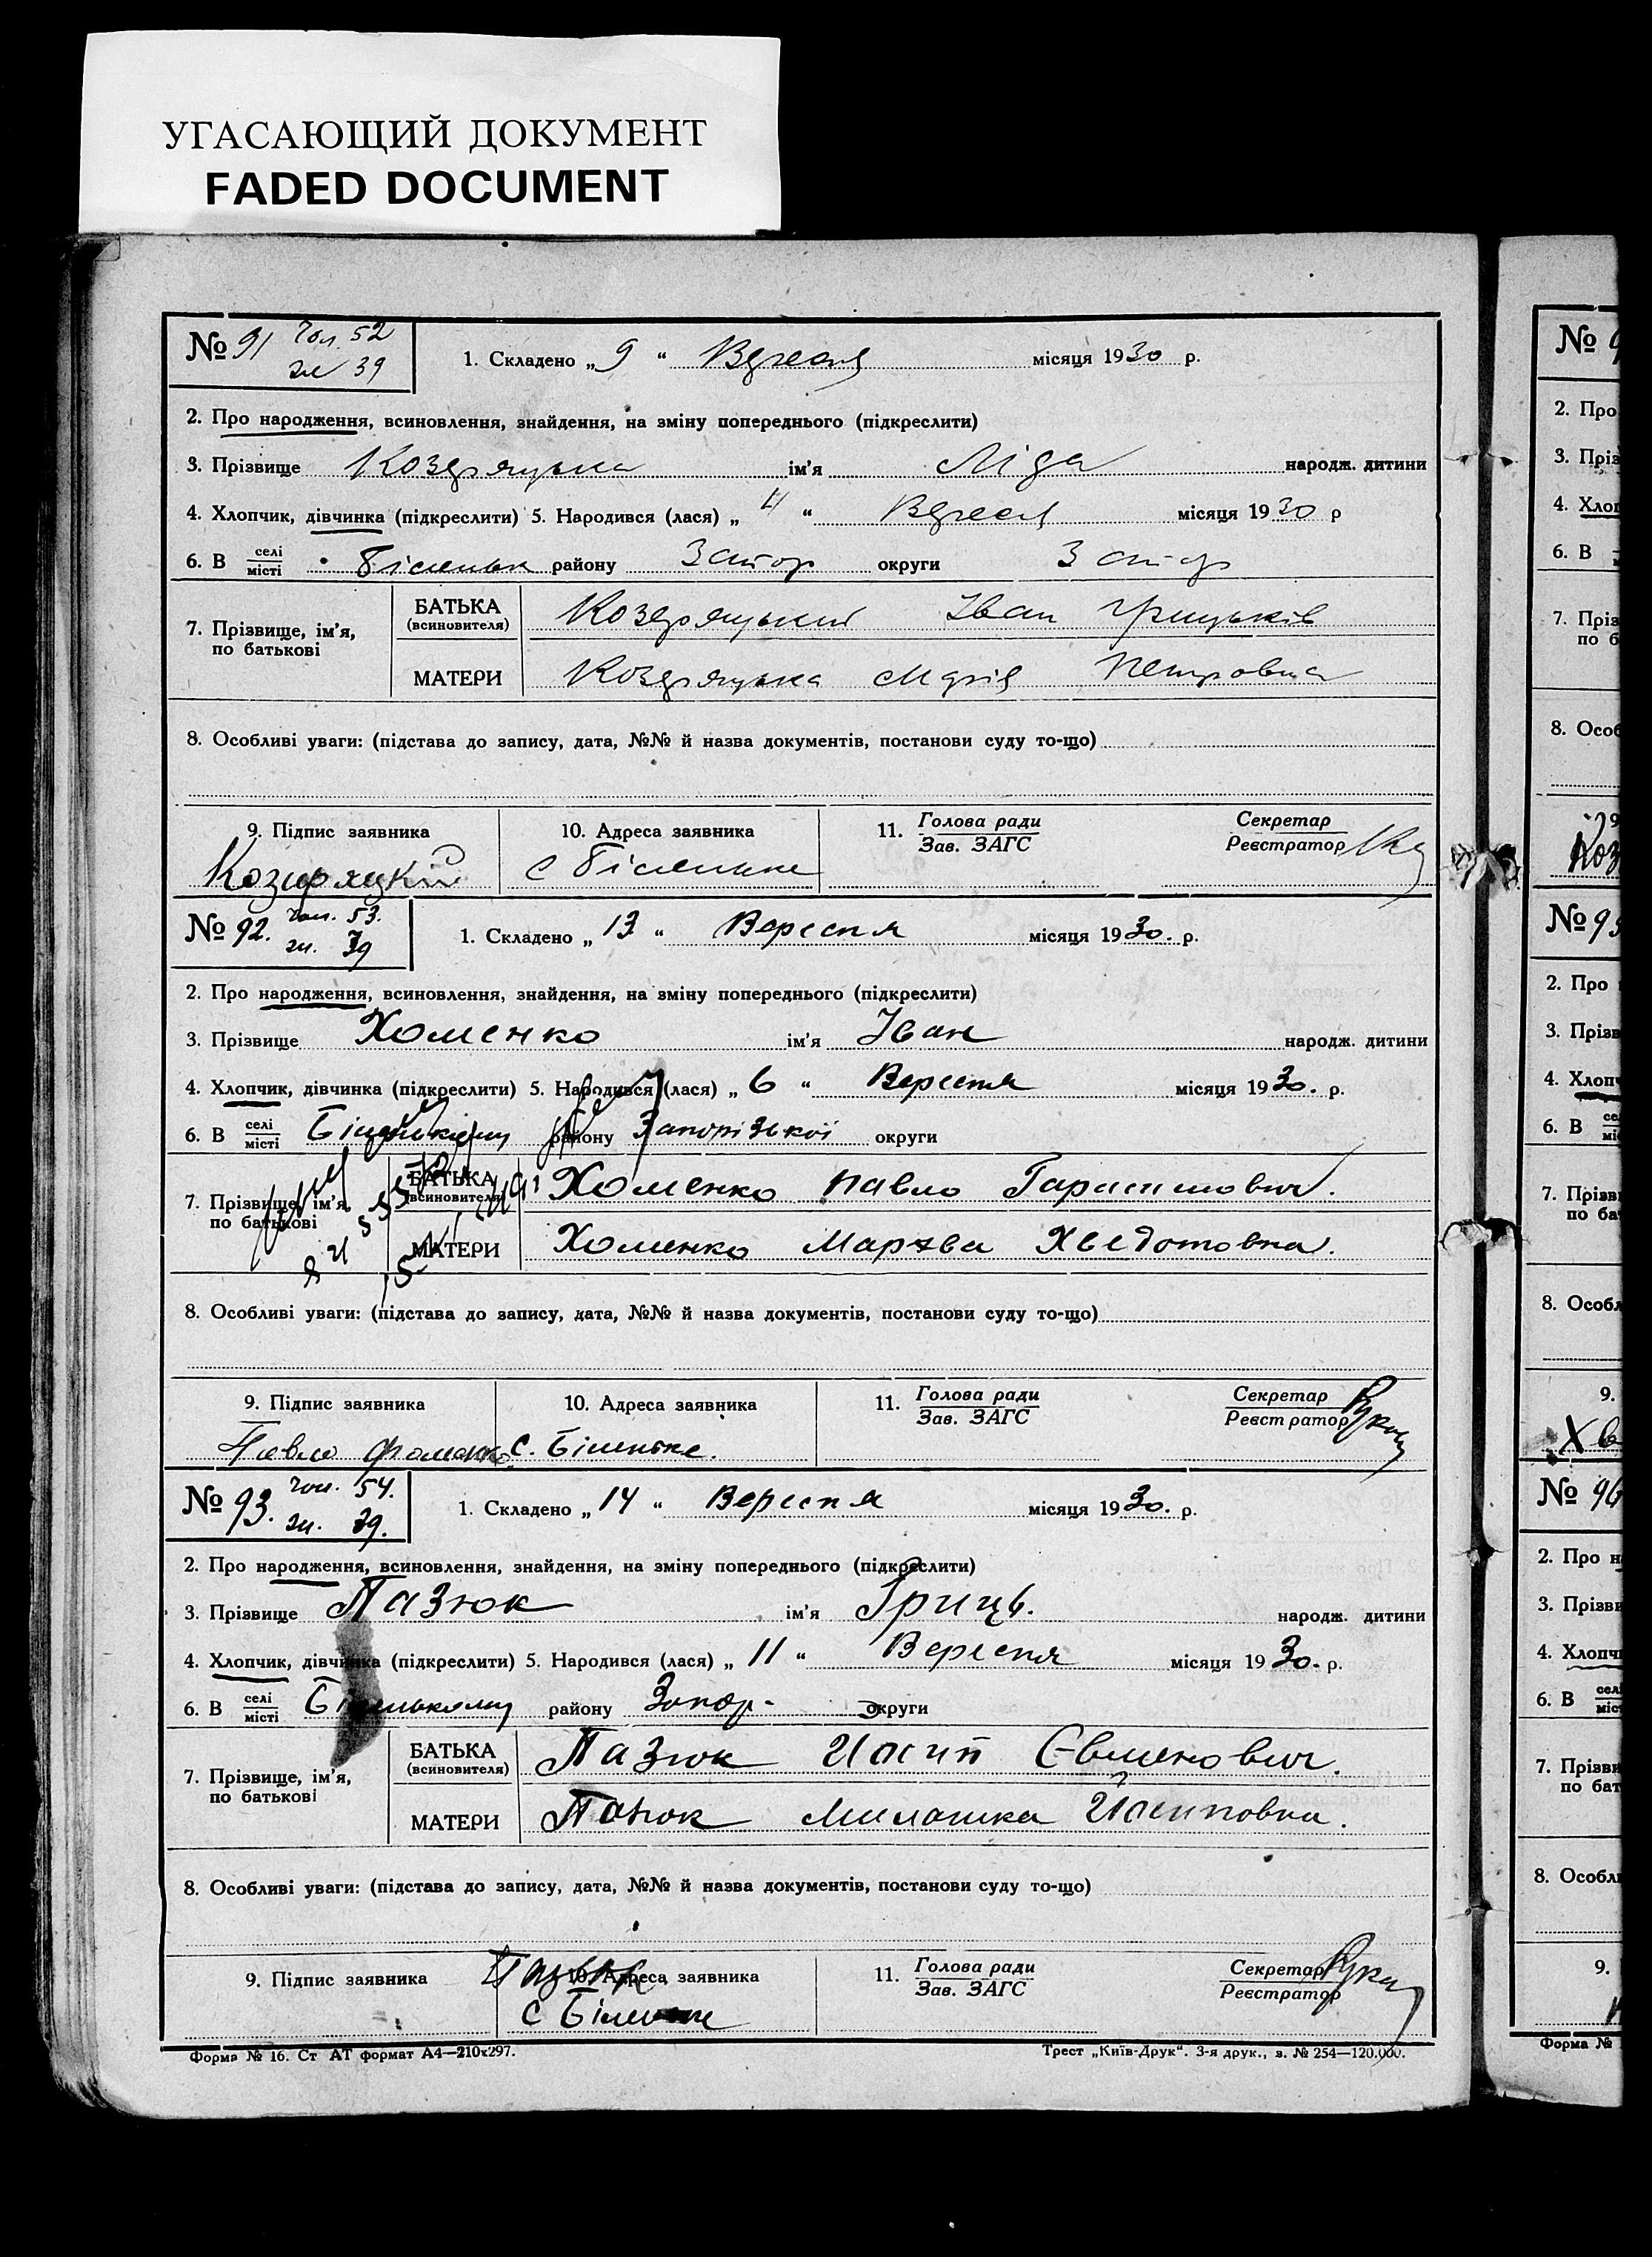 УГАСАЮЩИЙ ДОКУМЕНТ
FADED DOCUMENT
№ 91 Чол. 52
жі 39
1. Складено „ 9 “ Вересня місяця 1930 р.
2. Про народження, всиновлення, знайдення, на зміну попереднього (підкреслити)
3. Прізвище ім'я Ліда народж. дитини
4. Хлопчик, дівчинка (підкреслити) 5. Народився (лася) „ 4 “ Вересня місяця 1930 р
6. В селі місті Біленьк району Запор округи Запор
7. Прізвище, ім'я, по батькові
БАТЬКА (всиновителя) Іван Грицьків
МАТЕРИ Марія Петровна
8. Особливі уваги: (підстава до запису, дата, №№ й назва документів, постанови суду то-що)
9. Підпис заявника 10. Адреса заявника 11. Голова ради Зав. ЗАГС Секретар Реєстратор
с Біленьке
№ 92. чол. 53.
жі. 39
1. Складено „ 13 “ Вересня місяця 1930. р.
2. Про народження, всиновлення, знайдення, на зміну попереднього (підкреслити)
3. Прізвище Хоменко ім'я Іван народж. дитини
4. Хлопчик, дівчинка (підкреслити) 5. Народився (лася) „ 6 “ Вересня місяця 1930. р.
6. В селі місті Біленькому району Запорізької округи
7. Прізвище, ім'я, по батькові
БАТЬКА (всиновителя) Хоменко Павло Гарасимович.
МАТЕРИ Хоменко Мархва Хведотовна.
8. Особливі уваги: (підстава до запису, дата, №№ й назва документів, постанови суду то-що)
9. Підпис заявника 10. Адреса заявника 11. Голова ради Зав. ЗАГС Секретар Реєстратор
Павло Фоменко с. Біленьке.
№ 93. чол. 54.
жі. 39.
1. Складено „ 14 “ Вересня місяця 1930. р.
2. Про народження, всиновлення, знайдення, на зміну попереднього (підкреслити)
3. Прізвище Пазюк ім'я Гриць. народж. дитини
4. Хлопчик, дівчинка (підкреслити) 5. Народився (лася) „ 11 “ Вересня місяця 1930. р.
6. В селі місті Біленькому району Запор. округи
7. Прізвище, ім'я, по батькові
БАТЬКА (всиновителя) Пазюк Йосип Євменович.
МАТЕРИ Пазюк Милашка Йосиповна.
8. Особливі уваги: (підстава до запису, дата, №№ й назва документів, постанови суду то-що)
9. Підпис заявника 10. Адреса заявника 11. Голова ради Зав. ЗАГС Секретар Реєстратор
Пазюк
с Біленьке
Форма № 16. Ст АТ формат А4—210x297.
Трест „Київ-Друк“. 3-я друк., з. № 254—120.000.